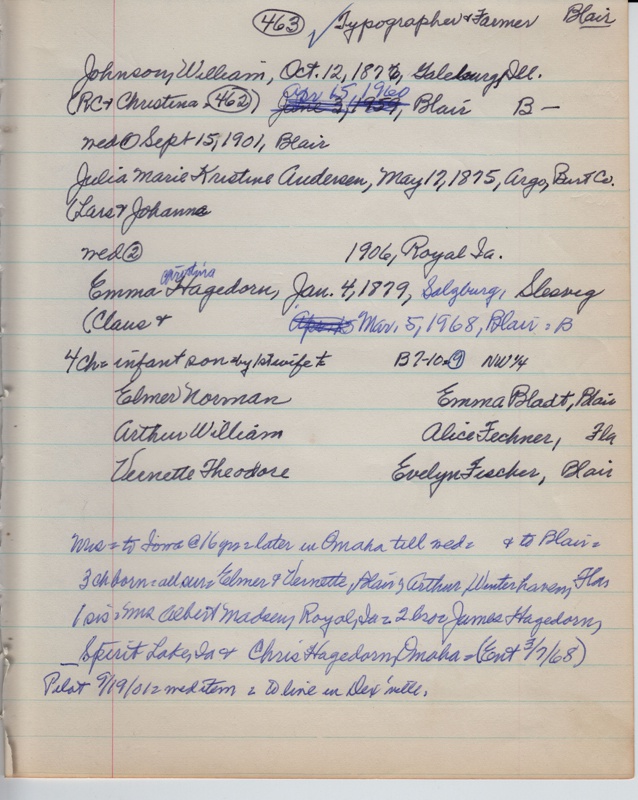 463 ✓ Typographer & Farmer Blair
Johnson, William, Oct. 12, 1876, Galesburg, Ill.
(RC & Christina, 462) Apr 15, 1960 June 3, 1959, Blair B —
med ① Sept 15, 1901, Blair
Julia Marie Kristine Andersen, May 17, 1875, Argo, Burt Co.
(Lars & Johanna
med ② 1906, Royal Ia.
Emma Christina Hagedorn, Jan. 4, 1879, Salzburg, Slesvig
(Claus & Mar. 5, 1968, Blair = B
4 ch = infant son by 1st wife & B 7-10-9 NW¼
Elmer Norman Emma Bladt, Blair
Arthur William Alice Fechner, Fla
Vernette Theodore Evelyn Fischer, Blair
Mrs = to Iowa @ 16 yrs = later in Omaha till med = & to Blair =
3 ch born = all sur = Elmer & Vernette, Blair; Arthur, Winterhaven, Fla
1 sis = Mrs Albert Madsen, Royal, Ia = 2 bro = James Hagedorn,
Spirit Lake, Ia & Chris Hagedorn, Omaha = (Ent 3/7/68)
Pilot 9/19/01 = med item = to live in Dex'ville.